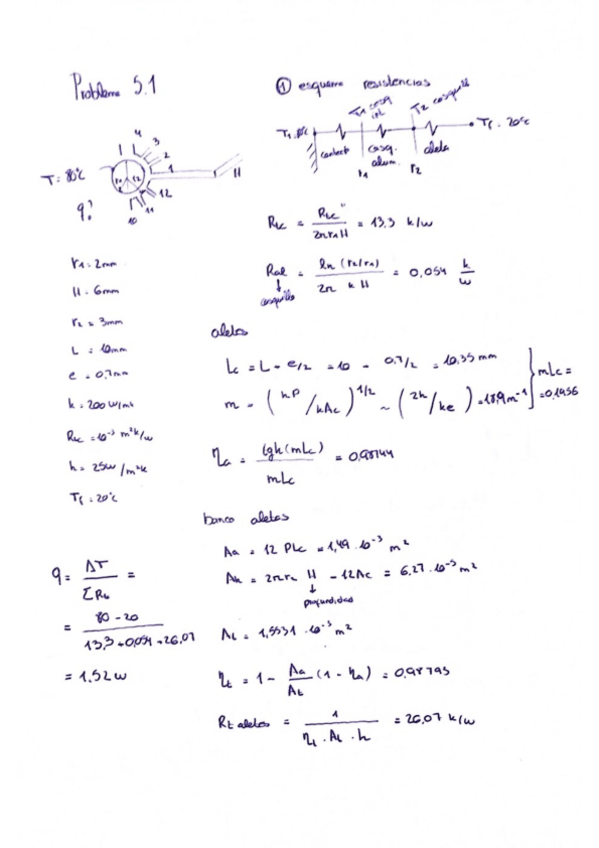 Problema 5.1
① esquema resistencias
T₁ casq int
T₂ casquillo
Tf = 20°C
contact
casq. alum.
aleta
r₁
r₂
T = 80°C
q?
4
3
2
1
H
12
11
10
r₁ = 2mm
H = 6mm
r₂ = 3mm
L = 10mm
e = 0,7mm
k = 200 W/mk
Rtc = 10⁻³ m²k/W
h = 25W/m²k
Tf = 20°C
Rtc = Rtc'' / 2πr₁H = 13,3 k/W
Ral = ln (r₂/r₁) / 2π k H = 0,054 k/W
casquillo
aletas
Lc = L - e/2 = 10 - 0,7/2 = 10,35 mm
m = (hP/kAc)^1/2 ~ (2h/ke) = 18,9m⁻¹
mLc = 0,1956
ηa = tgh(mLc) / mLc = 0,98744
banco aletas
Aa = 12 PLc = 1,49 · 10⁻³ m²
Ah = 2πr₂ H - 12Ac = 6,27 · 10⁻⁵ m²
profundidad
At = 1,5531 · 10⁻³ m²
ηt = 1 - Aa/At (1 - ηa) = 0,98795
Rt aletas = 1 / ηt · At · h = 26,07 k/W
q = ΔT / ΣRt =
= 80 - 20 / 13,3 + 0,054 + 26,07
= 1,52 W